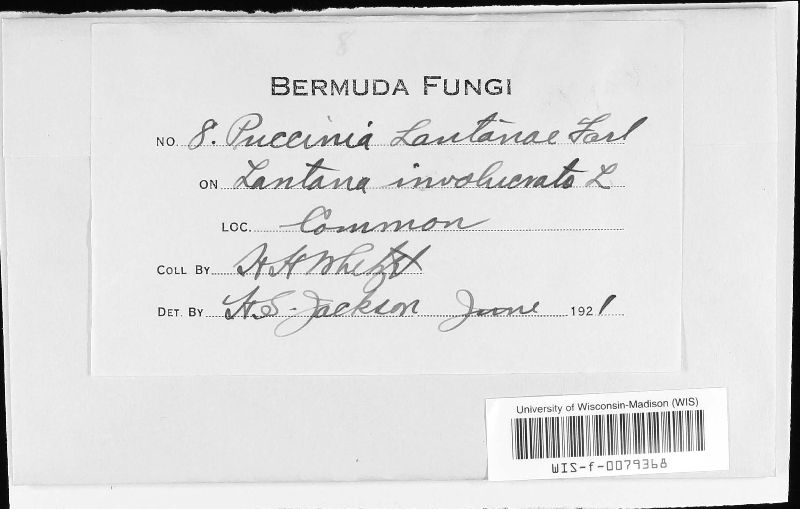 8
BERMUDA FUNGI
NO. 8. Puccinia Lantanae Farl
ON Lantana involucrata L
LOC. Common
COLL BY H H Whetzel
DET. BY H. S. Jackson June 1921
University of Wisconsin-Madison (WIS)
WIS-f-0079368